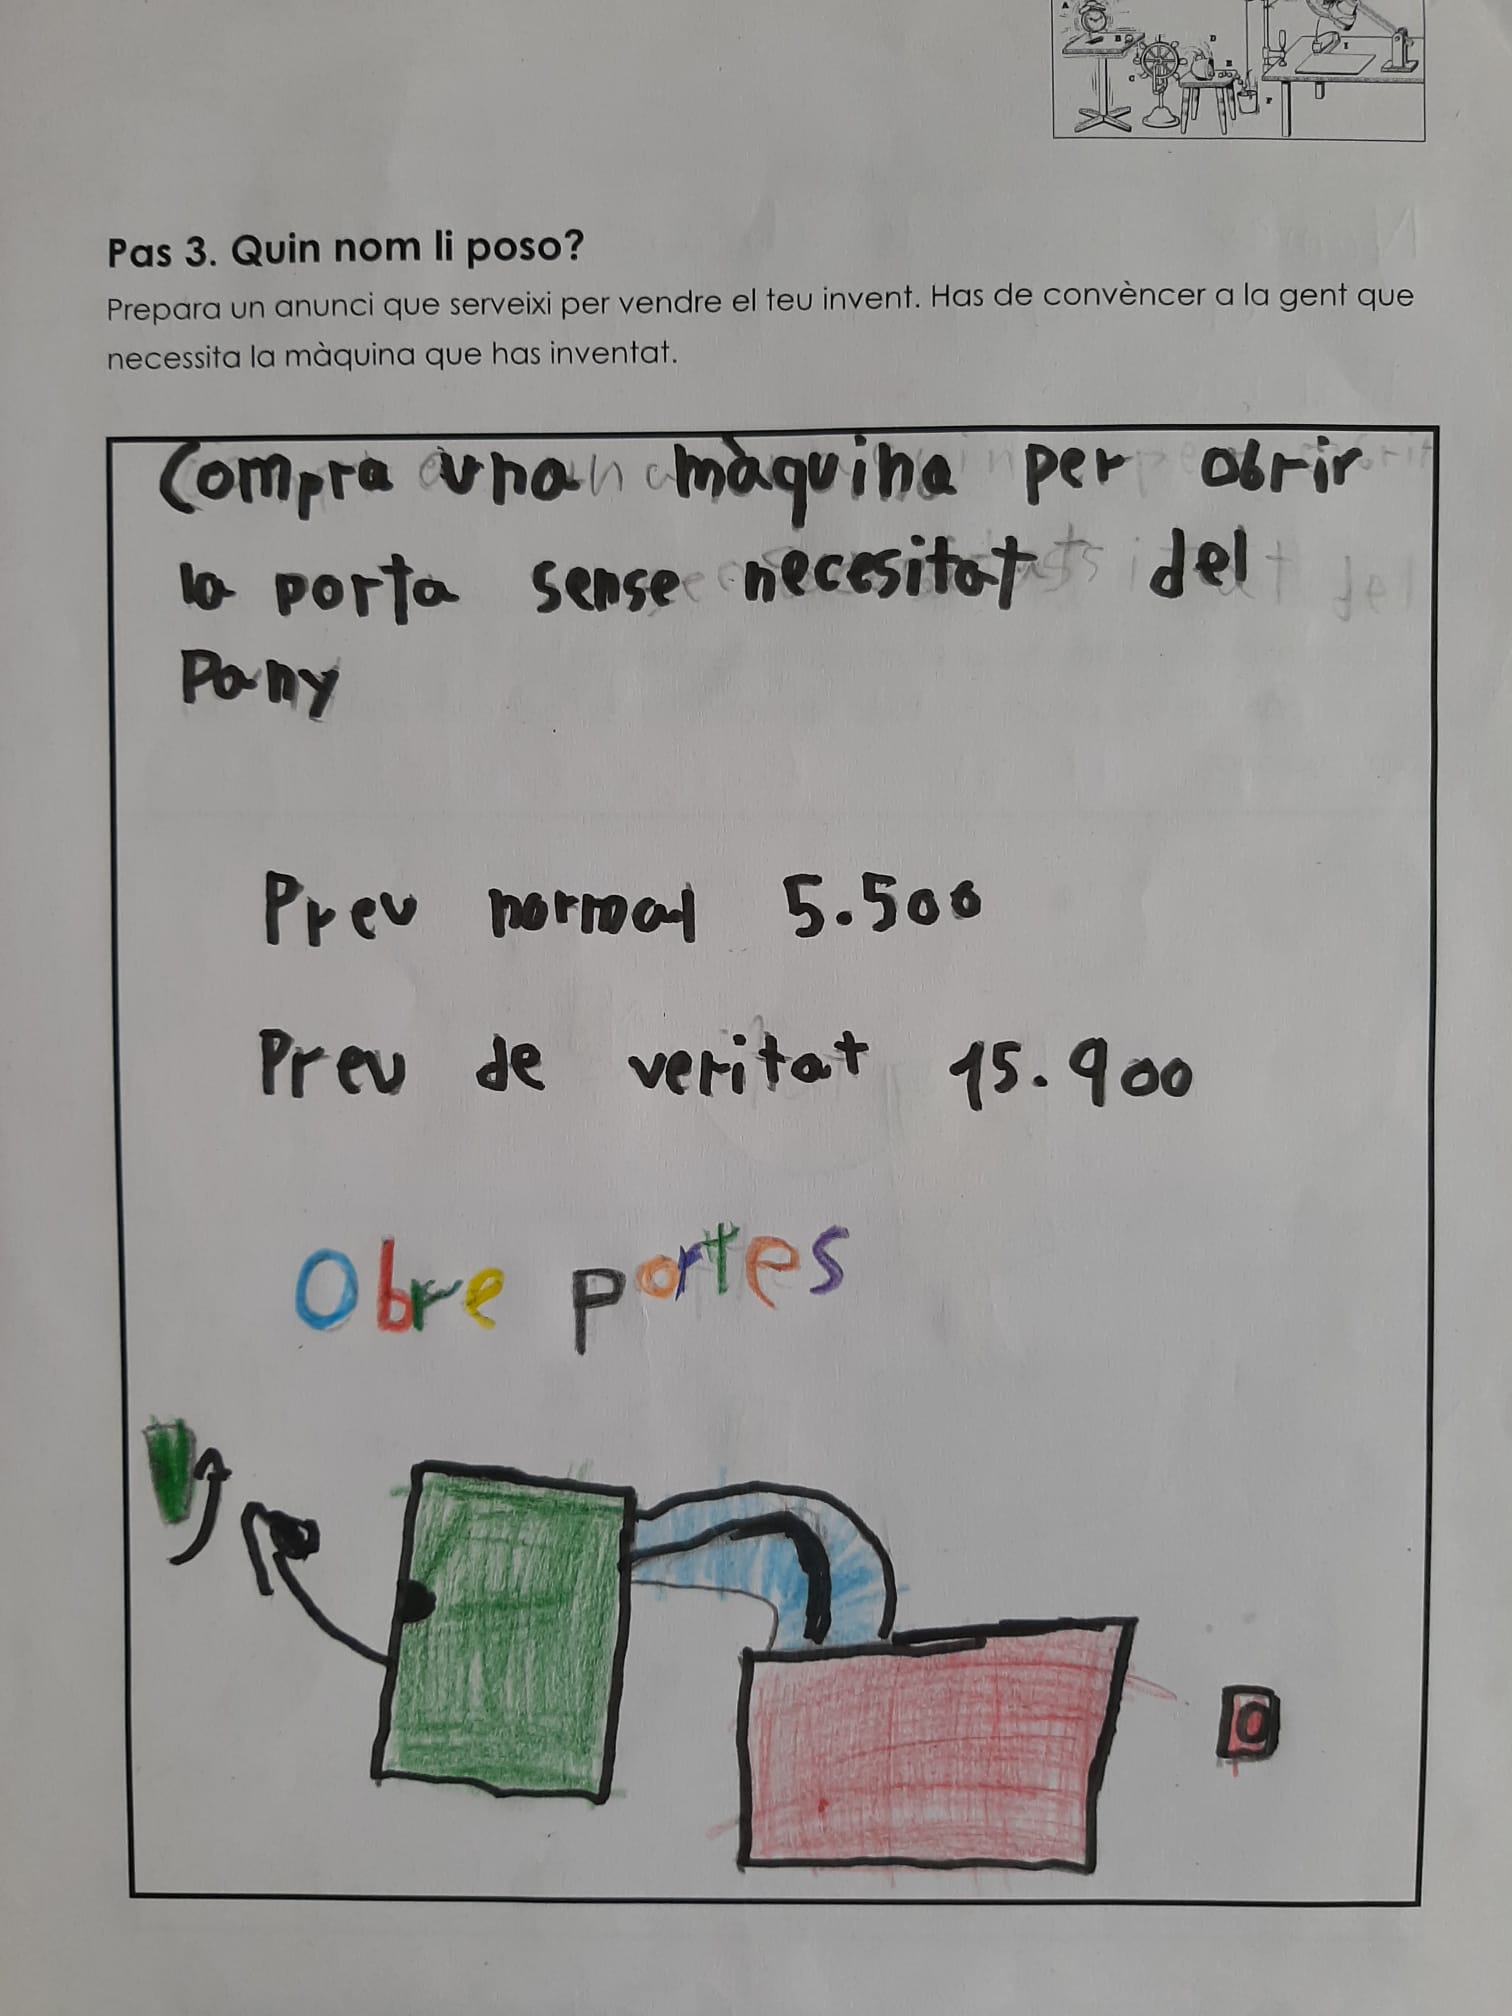 Pas 3. Quin nom li poso?
Prepara un anunci que serveixi per vendre el teu invent. Has de convèncer a la gent que
necessita la màquina que has inventat.
Compra una màquina per obrir
la porta sense necesitat del
Pany
Preu normal 5.500
Preu de veritat 15.900
Obre portes